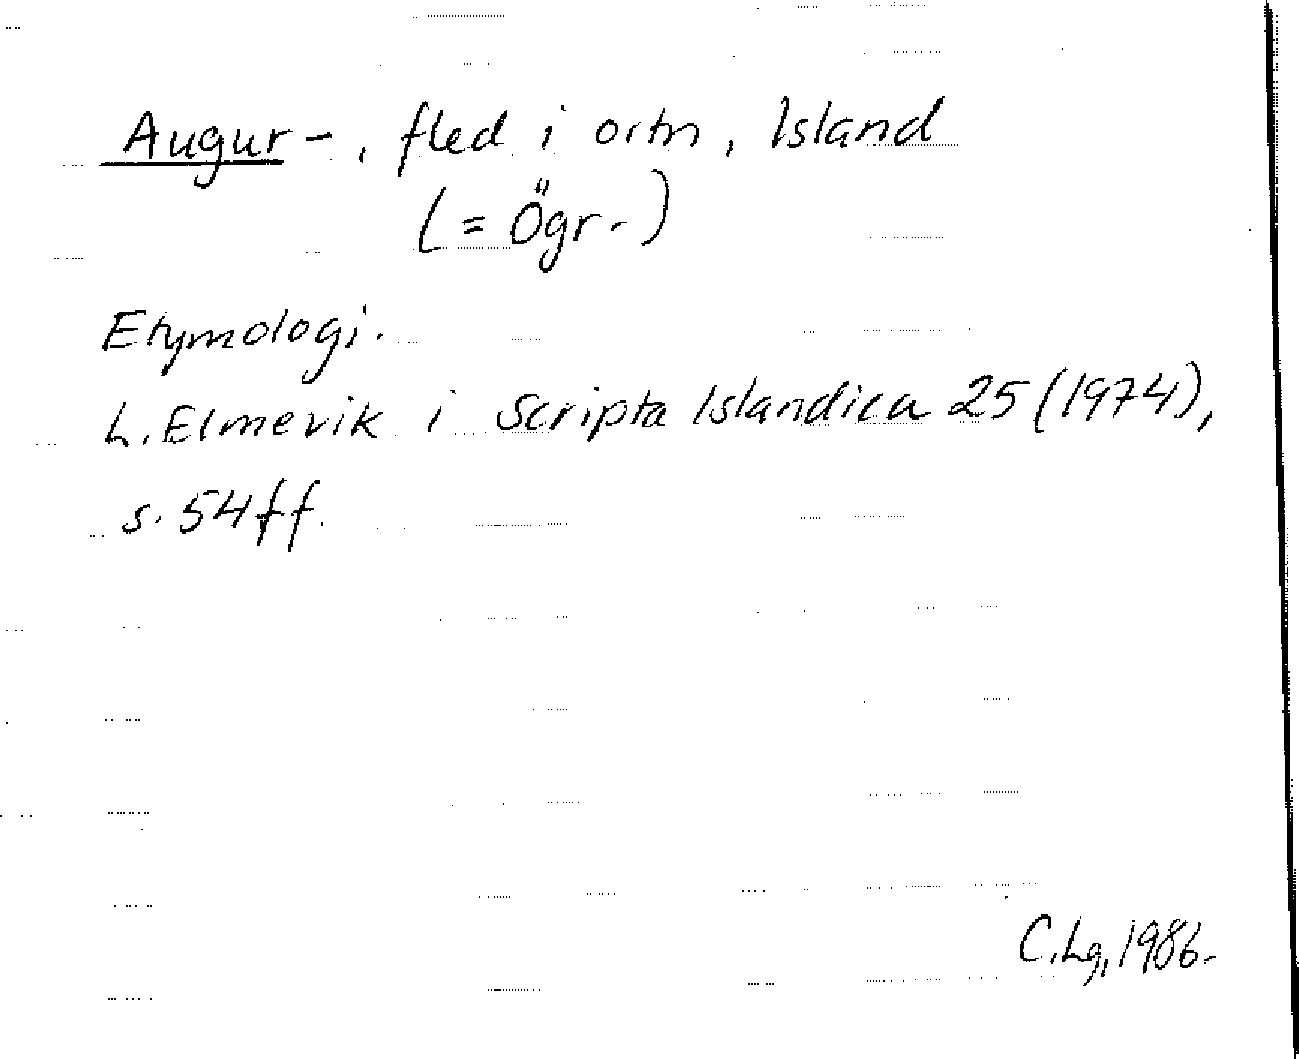 Augur-, fled i ortn, Island
(= Ögr-)
Etymologi.
L. Elmevik i Scripta Islandica 25 (1974),
s. 54 ff.
C. Lg, 1986.